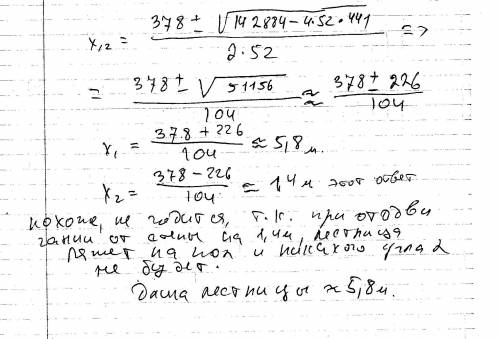 x₁,₂ = (378 ± √(142884 - 4·52·441)) / (2·52) =>
= (378 ± √51156) / 104 ≈ (378 ± 226) / 104
x₁ = (378 + 226) / 104 ≈ 5,8 м.
x₂ = (378 - 226) / 104 ≈ 1,4 м этот ответ
похоже, не годится, т.к. при отодви
гании от стены на 1,4м, лестница
ляжет на пол и никакого угла α
не будет.
Длина лестницы ≈ 5,8м.